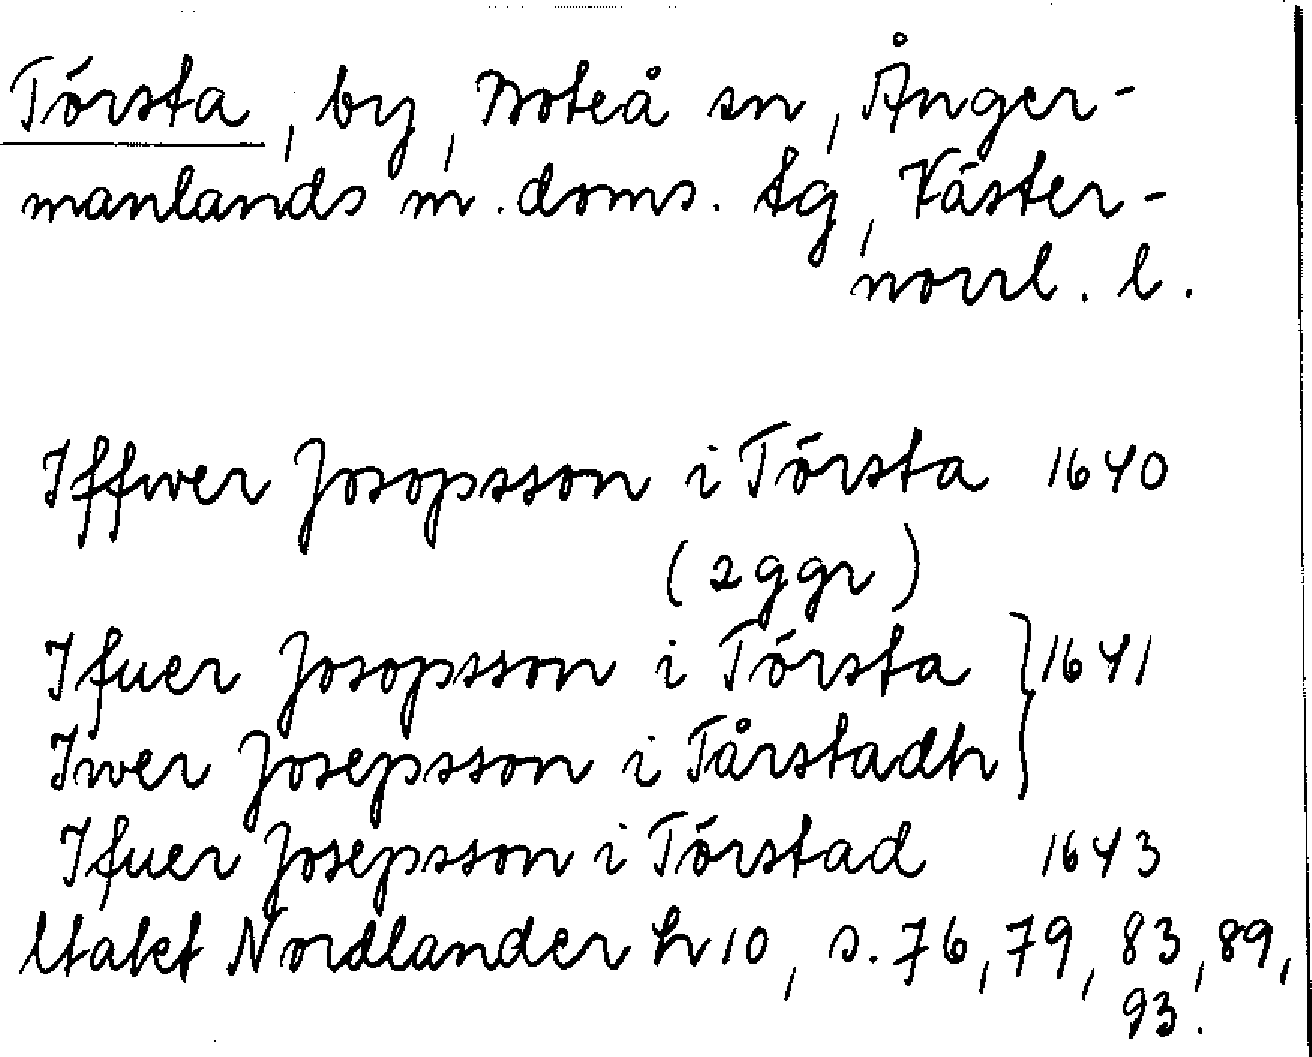 Törsta, by, Boteå sn, Ånger-
manlands m. doms. tg, Väster-
norrl. l.
Iffwer Josopsson i Törsta 1640
(2 ggr)
Ifuer Josopsson i Törsta } 1641
Iwer Josepsson i Tårstadh
Ifuer Josepsson i Törstad 1643
Utakt Nordlander h 10, s. 76, 79, 83, 89,
93.